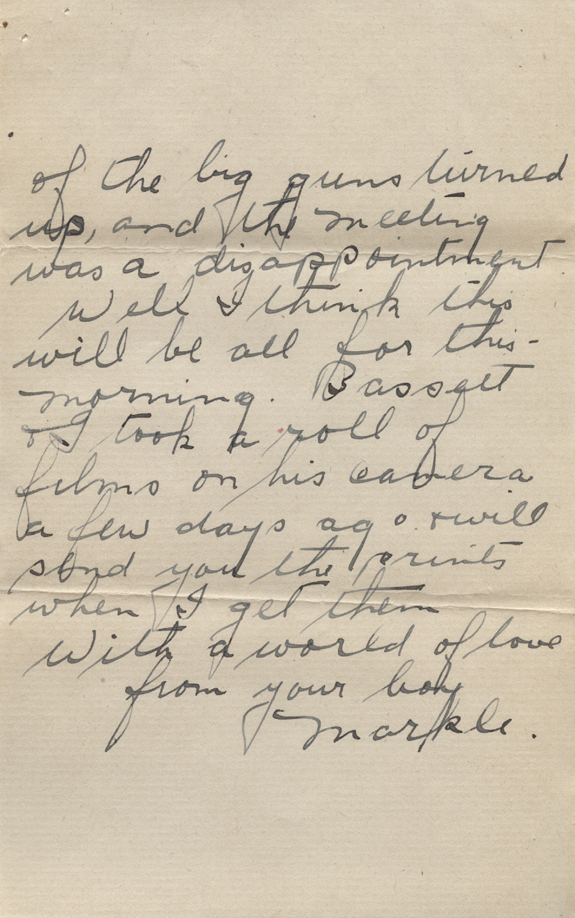 of the big guns turned
up, and the meeting
was a disappointment.
Well I think this
will be all for this-
morning. Bassett
& I took a roll of
films on his camera
a few days ago & will
send you the prints
when I get them
With a world of love
from your boy
Markle.